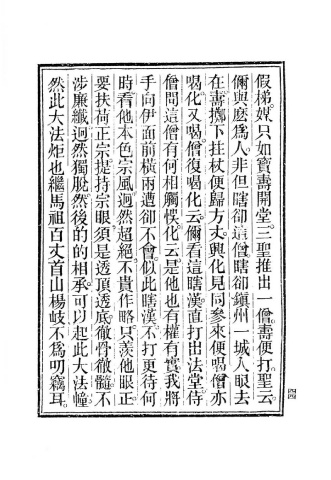 假梯媒。只如寶壽開堂。三聖推出一僧。壽便打。聖云。
儞與麼爲人。非但瞎卻這僧。瞎卻鎮州一城人眼去
在。壽擲下拄杖。便歸方丈。興化見同參來便喝。僧亦
喝。化又喝。僧復喝。化云。儞看這瞎漢。直打出法堂。侍
僧問。這僧有何相觸悞。化云。是他也有權有實。我將
手向伊面前橫兩遭。卻不會。似此瞎漢。不打更待何
時。看他本色宗風。迥然超絕。不貴作略。只羨他眼正。
要扶荷正宗。提持宗眼。須是透頂透底。徹骨徹髓。不
涉廉纖。迥然獨脫。然後的的相承。可以起此大法幢。
然此大法炬也。繼馬祖百丈首山楊岐。不爲叨竊耳。
四四